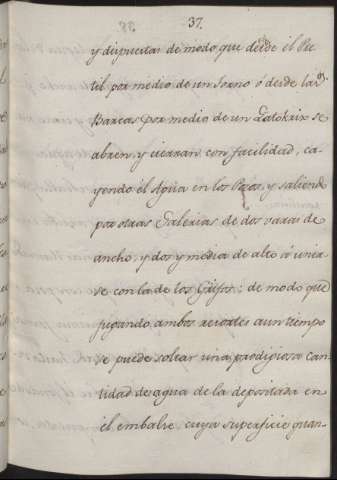 37.
y dispuestas de modo que desde el Pre
til por medio de un torno ó desde las
Barcas por medio de un se
abren, y cierran con facilidad, ca
yendo él Agua en los Pozos, y saliendo
por otras Galerias de dos varas de
ancho, y dos y media de alto á unir
se con la de los Grifos: de modo que
jugando ambos resortes a un tiempo
se puede soltar una prodigiosa can
tidad de agua de la depositada en
él embalse, cuya superficie guar-